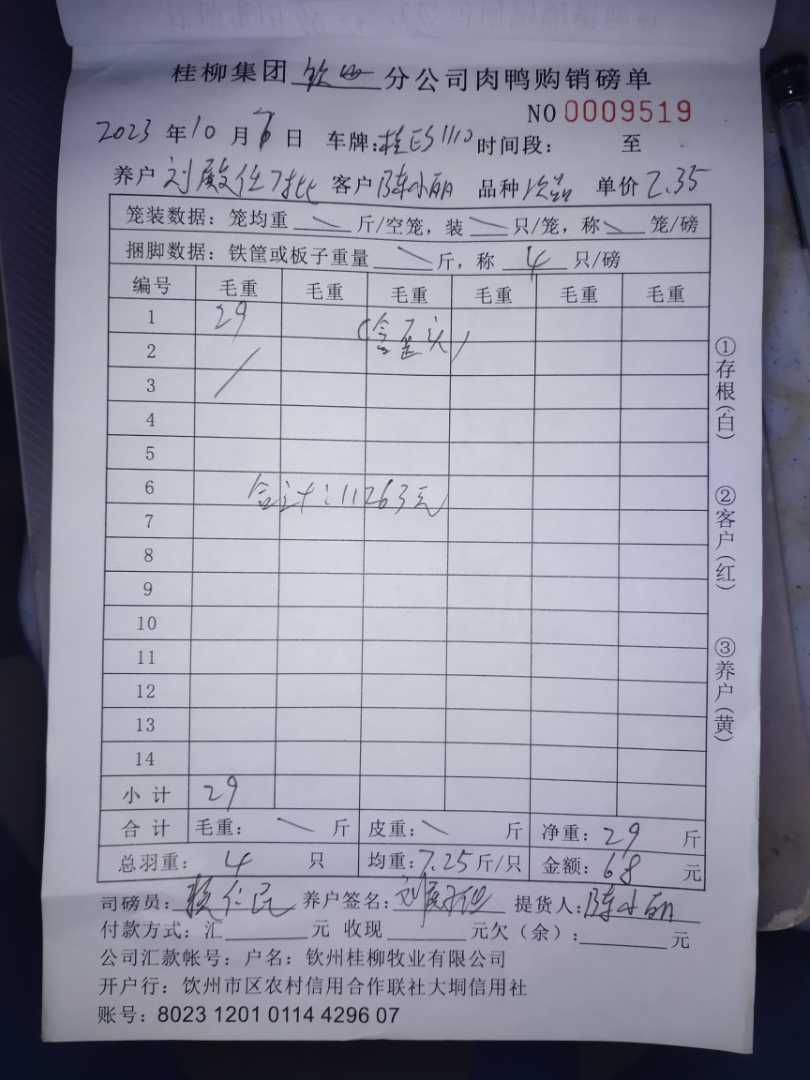 桂柳集团 钦州 分公司肉鸭购销磅单
NO 0009519
2023 年 10 月 7 日 车牌: 桂E51110 时间段: 至
养户 客户 陈小丽 品种 次品 单价 2.35
笼装数据: 笼均重 斤/空笼, 装 只/笼, 称 笼/磅
捆脚数据: 铁筐或板子重量 斤, 称 4 只/磅
编号 毛重 毛重 毛重 毛重 毛重 毛重
1 29 (含歪头)
2
3
4
5
6 合计: 11263元
7
8
9
10
11
12
13
14
小计 29
合计 毛重: 斤 皮重: 斤 净重: 29 斤
总羽重: 4 只 均重: 7.25 斤/只 金额: 68 元
司磅员: 养户签名: 提货人: 陈小丽
付款方式: 汇 元 收现 元欠(余): 元
公司汇款帐号: 户名: 钦州桂柳牧业有限公司
开户行: 钦州市区农村信用合作联社大垌信用社
账号: 8023 1201 0114 4296 07
①存根(白)
②客户(红)
③养户(黄)